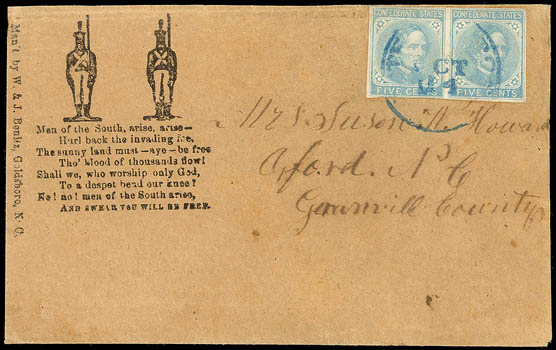 Man't by W. & J. Bonitz, Goldsboro, N. C.
Men of the South, arise, arise—
Hurl back the invading foe,
The sunny land must—aye—be free
Tho' blood of thousands flow!
Shall we, who worship only God,
To a despot bend our knee?
No! no! men of the South arise,
AND SWEAR YOU WILL BE FREE.
CONFEDERATE STATES
CONFEDERATE STATES
FIVE CENTS
FIVE CENTS
OCT
Mrs. Susan N. Howard
Oxford. N C
Granvill County